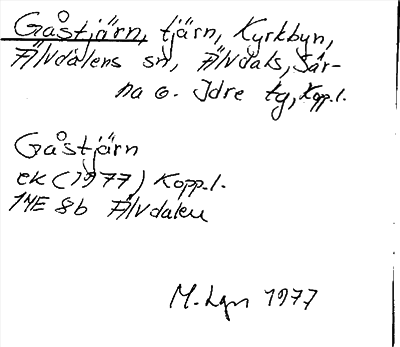 Gåstjärn, tjärn, Kyrkbyn,
Älvdalens sn, Älvdals, Sär-
na o. Idre tg, Kopp.l.
Gåstjärn
ek (1977) Kopp.l.
14E 8b Älvdalen
M. Lgn 1977